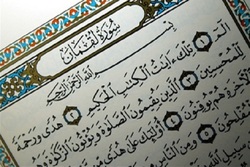 سُورَةُ لُقْمَانَ
بِسْمِ اللَّهِ الرَّحْمَٰنِ الرَّحِيمِ
الٓمٓ ١ تِلْكَ ءَايَٰتُ ٱلْكِتَٰبِ ٱلْحَكِيمِ ٢ هُدًى وَرَحْمَةً
لِّلْمُحْسِنِينَ ٣ ٱلَّذِينَ يُقِيمُونَ ٱلصَّلَوٰةَ وَيُؤْتُونَ ٱلزَّكَوٰةَ وَهُم
خِرَةِ هُمْ يُوقِنُونَ ٤ أُو۟لَٰٓئِكَ عَلَىٰ هُدًى